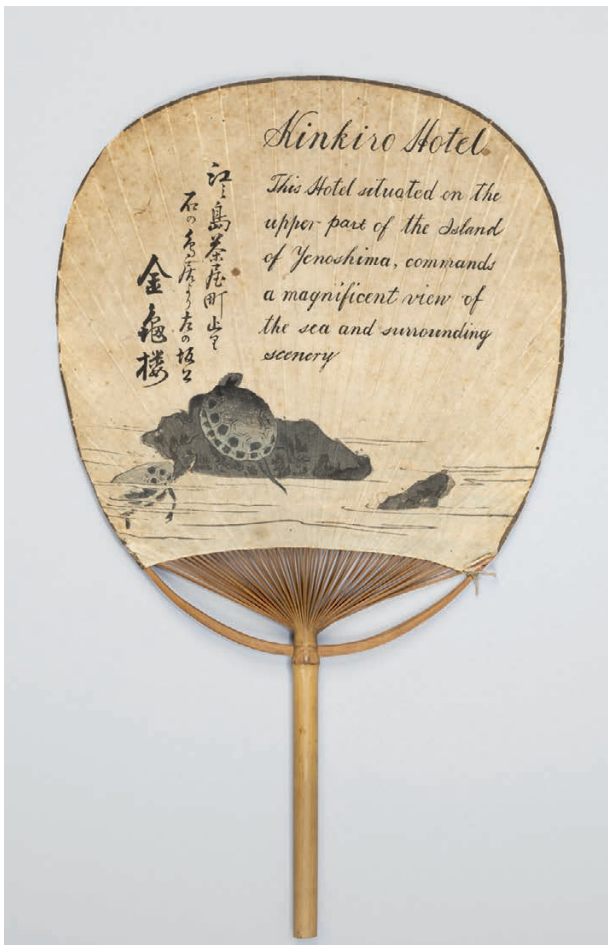 Kinkiro Hotel
This Hotel situated on the
upper part of the Island
of Yenoshima, commands
a magnificent view of
the sea and surrounding
scenery
江之島茶屋町上り
石の鳥居より左の坂上
金龜楼